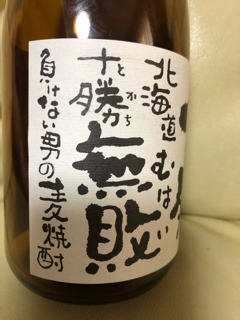 北海道
むはい
とかち
十勝無敗
負けない男の麦焼酎